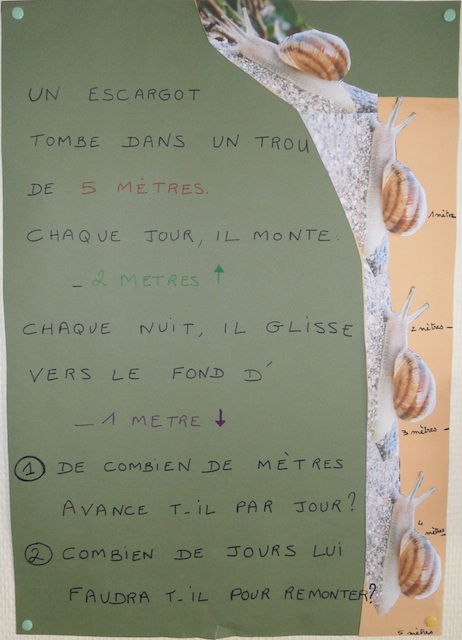 UN ESCARGOT
TOMBE DANS UN TROU
DE 5 MÈTRES.
CHAQUE JOUR, IL MONTE:
- 2 METRES ↑
CHAQUE NUIT, IL GLISSE
VERS LE FOND D'
- 1 METRE ↓
① DE COMBIEN DE MÈTRES
AVANCE T-IL PAR JOUR?
② COMBIEN DE JOURS LUI
FAUDRA T-IL POUR REMONTER?
1 mètre
2 mètres -
3 mètres -
4 mètres
5 mètres